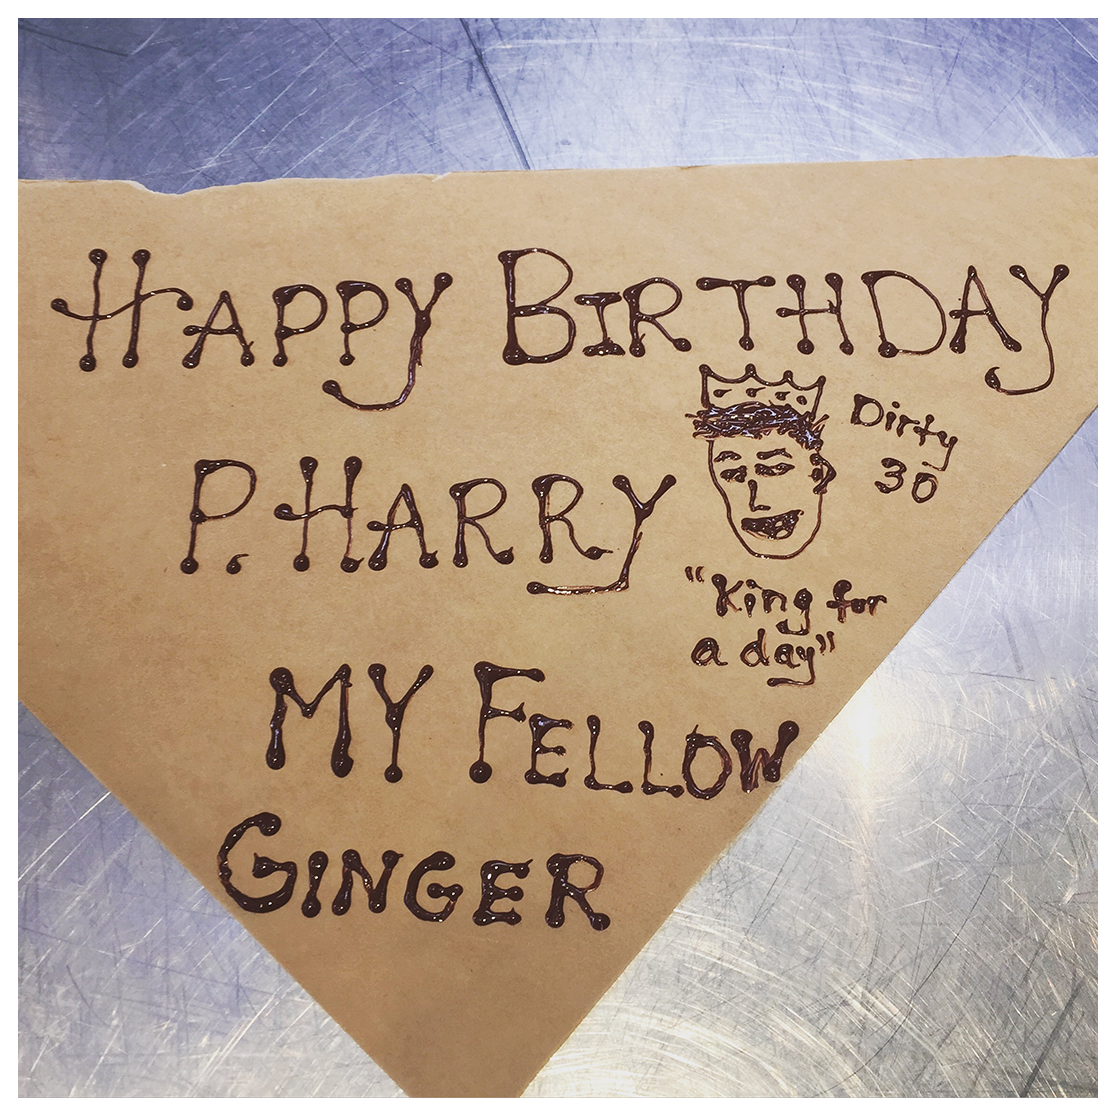 HAPPY BIRTHDAY
P. HARRY
Dirty
30
"King for
a day"
MY FELLOW
GINGER